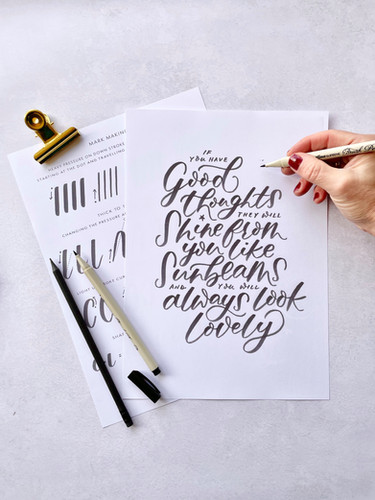 MARK MAKIN
HEAVY PRESSURE ON DOWN STROK
STARTING AT THE DOT AND TRAVELLING
THICK TO
CHANGING THE PRESSURE
IF
YOU HAVE
Good
thoughts
& THEY WILL
Shine from
you like
Sunbeams
AND YOU WILL
always look
lovely